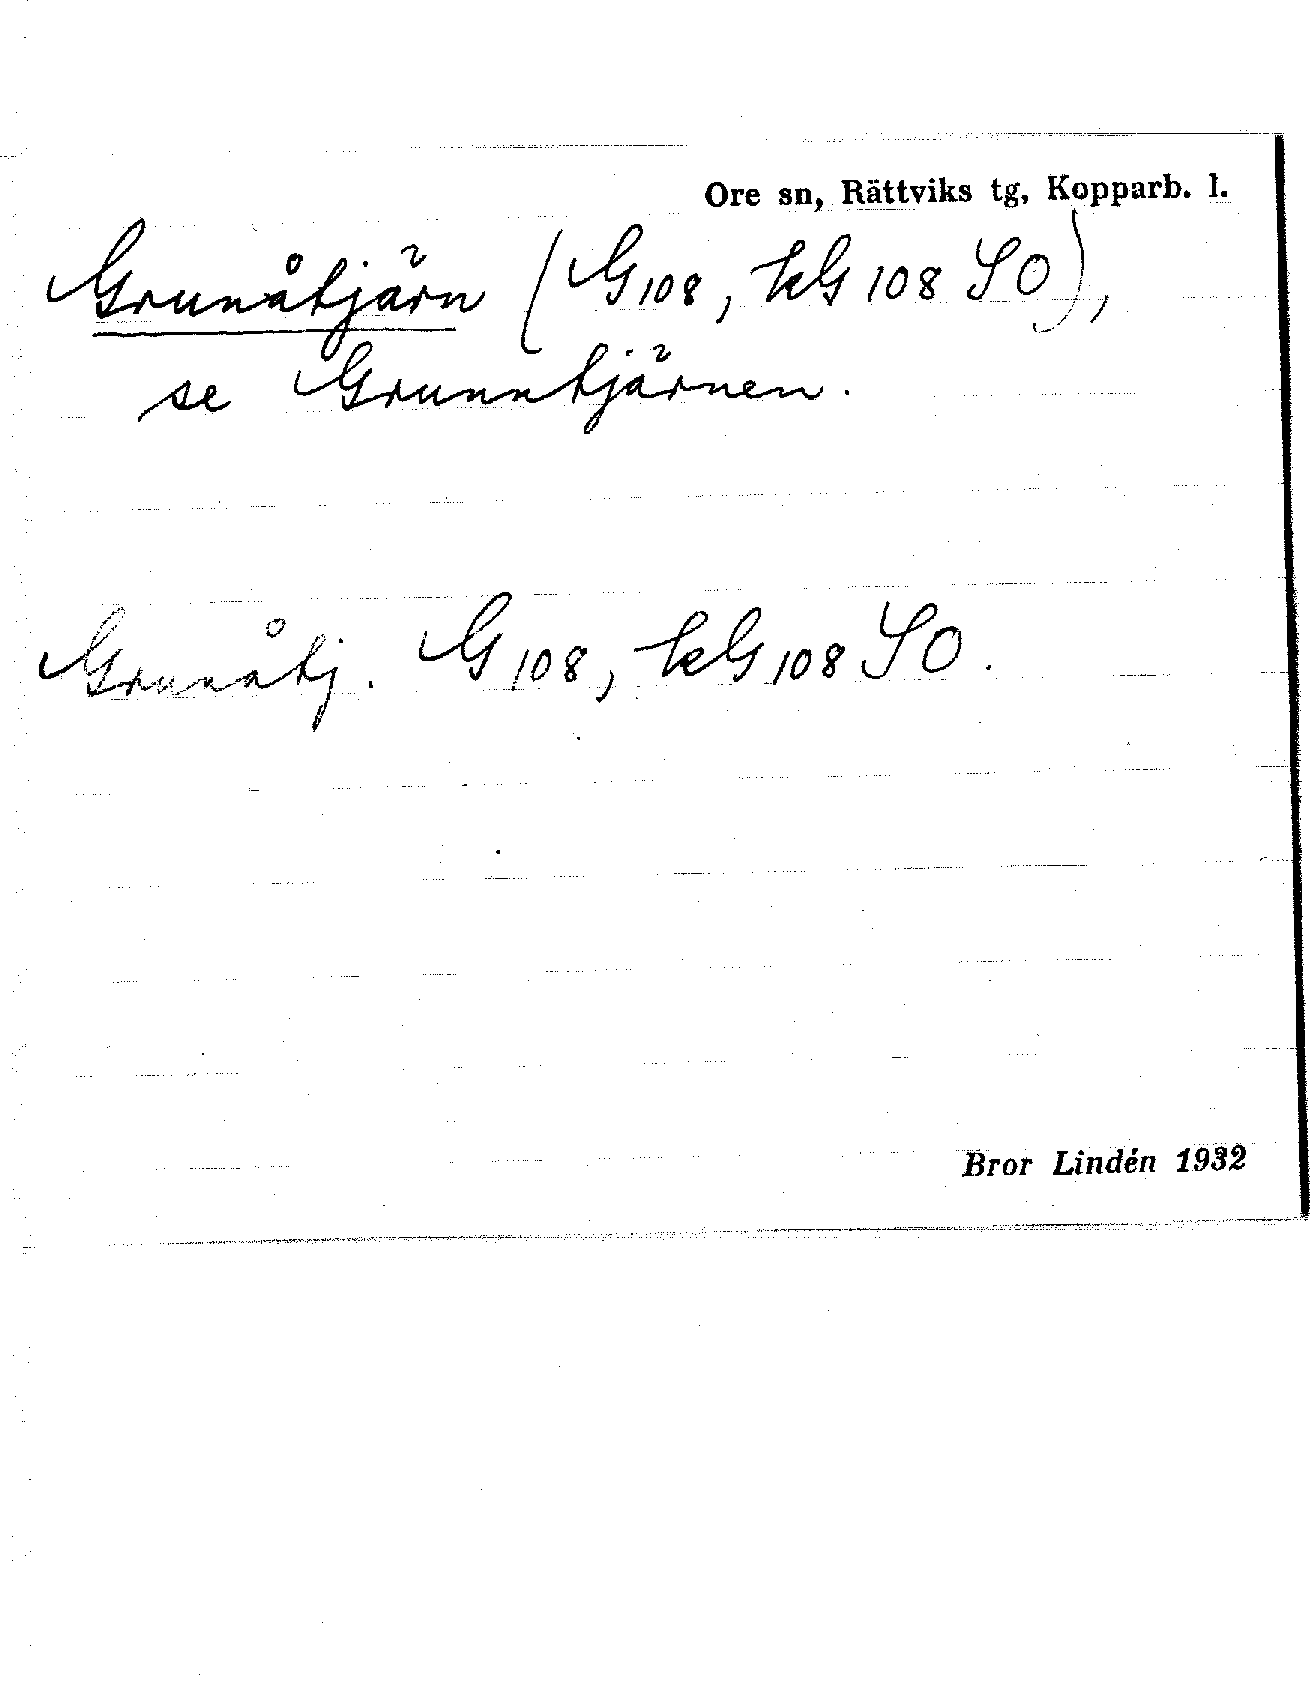 Ore sn, Rättviks tg, Kopparb. l.
Grunåtjärn (G108, kG 108 SO),
se Grunntjärnen.
Grunåtj. G108, kG108 SO.
Bror Lindén 1932